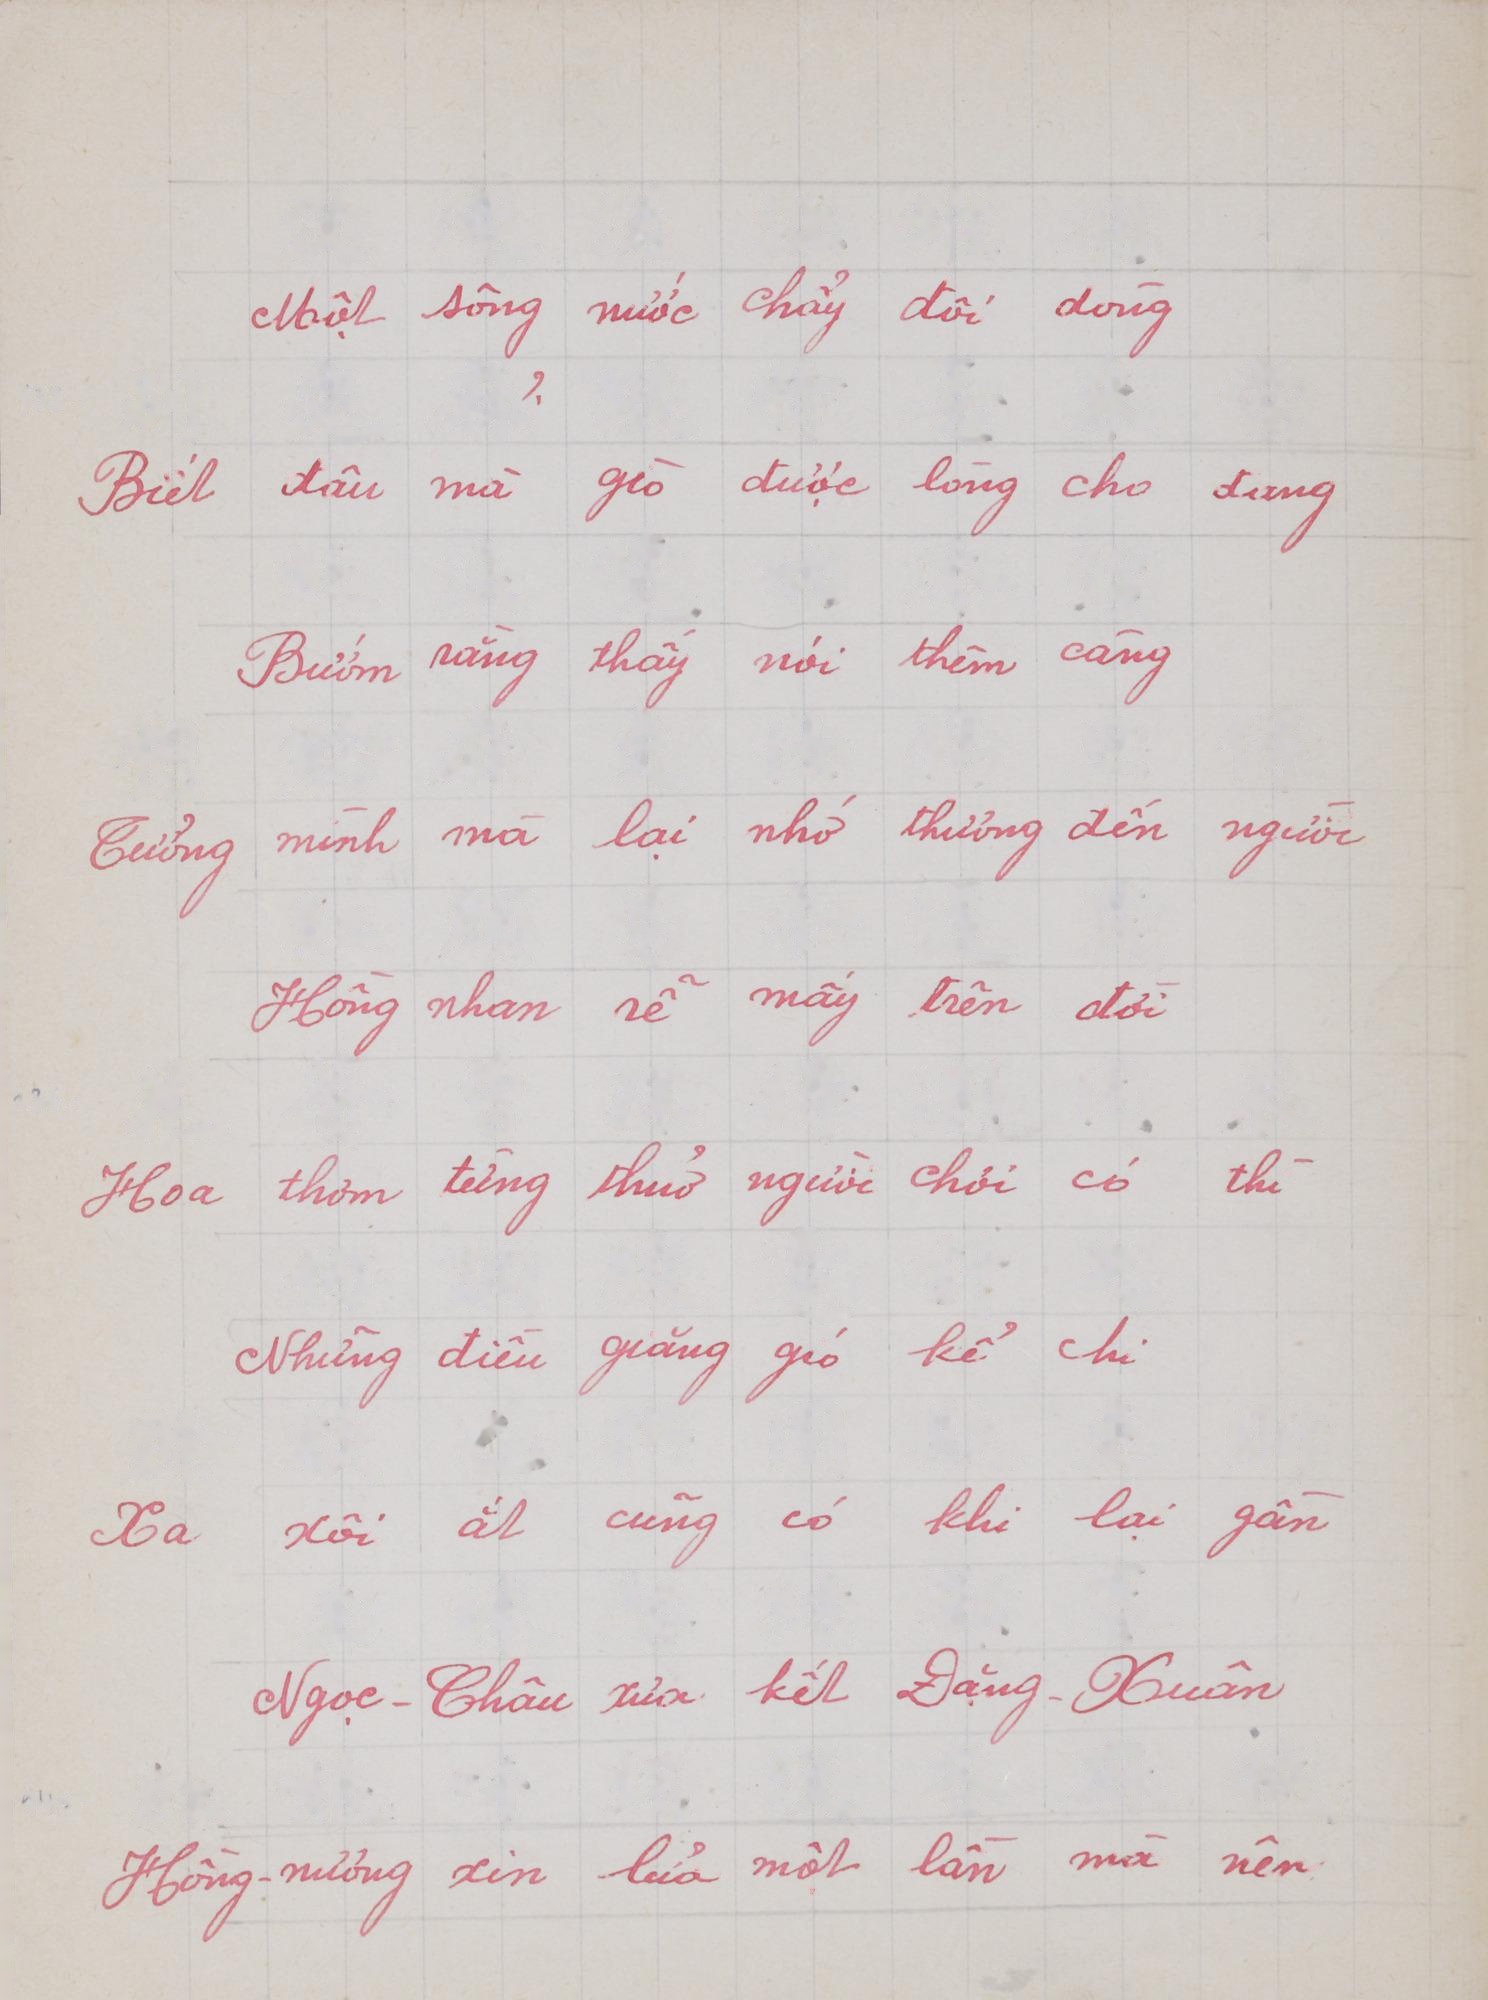 Một sông nước chẩy đôi dòng
?
Biết đâu mà giò được lòng cho đang
Bướm rằng thấy nói thêm càng
Tưởng mình mà lại nhớ thương đến người
Hồng nhan rễ mấy trên đời
Hoa thơm từng thuở người chơi có thì
Những điều giăng gió kể chi
Xa xôi ắt cũng có khi lại gần
Ngọc-Châu xưa kết Đặng-Xuân
Hồng-nương xin lửa một lần mà nên